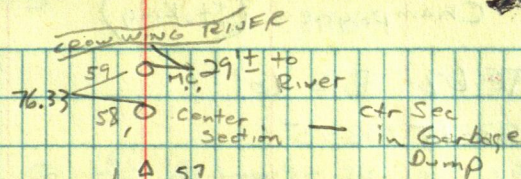 CROW WING RIVER
59 M.C. 29'± to
River
76.33
58, Center — Ctr Sec
Section in Garbage
Dump
57